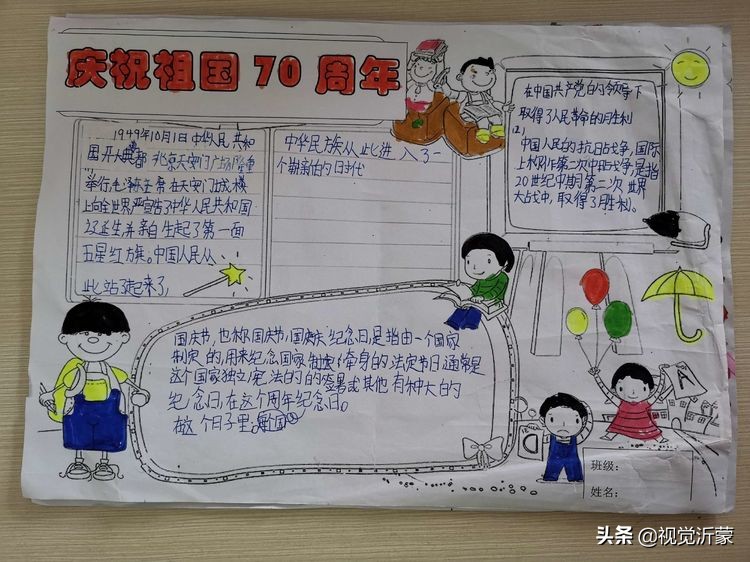 庆祝祖国70周年
1949年10月1日中华人民共和
国开人典都 北京天安门广场隆重
举行毛泽东主席在天安门城楼
上向全世界严宣告了中华人民共和国
诞生并亲自生起了第一面
五星红方旗。中国人民从
此站了起来了,
中华民族从此进入了一
个崭新的日时代
在中国共产党白的领导下
取得了人民革命的胜利
中国人民的抗日战争,国际
上称作第二次中日战争,是指
20世纪中期第二次世界
大战中,取得了胜利。
国庆节,也称国庆节,国庆纪念日是指由一个国家
制定的,用来纪念国家本身的法定节日通常是
这个国家独立宪法的的签署或其他有种大的
纪念日,在这个周年纪念日。
在这个日子里。
A
班级:
姓名:
头条@视觉沂蒙